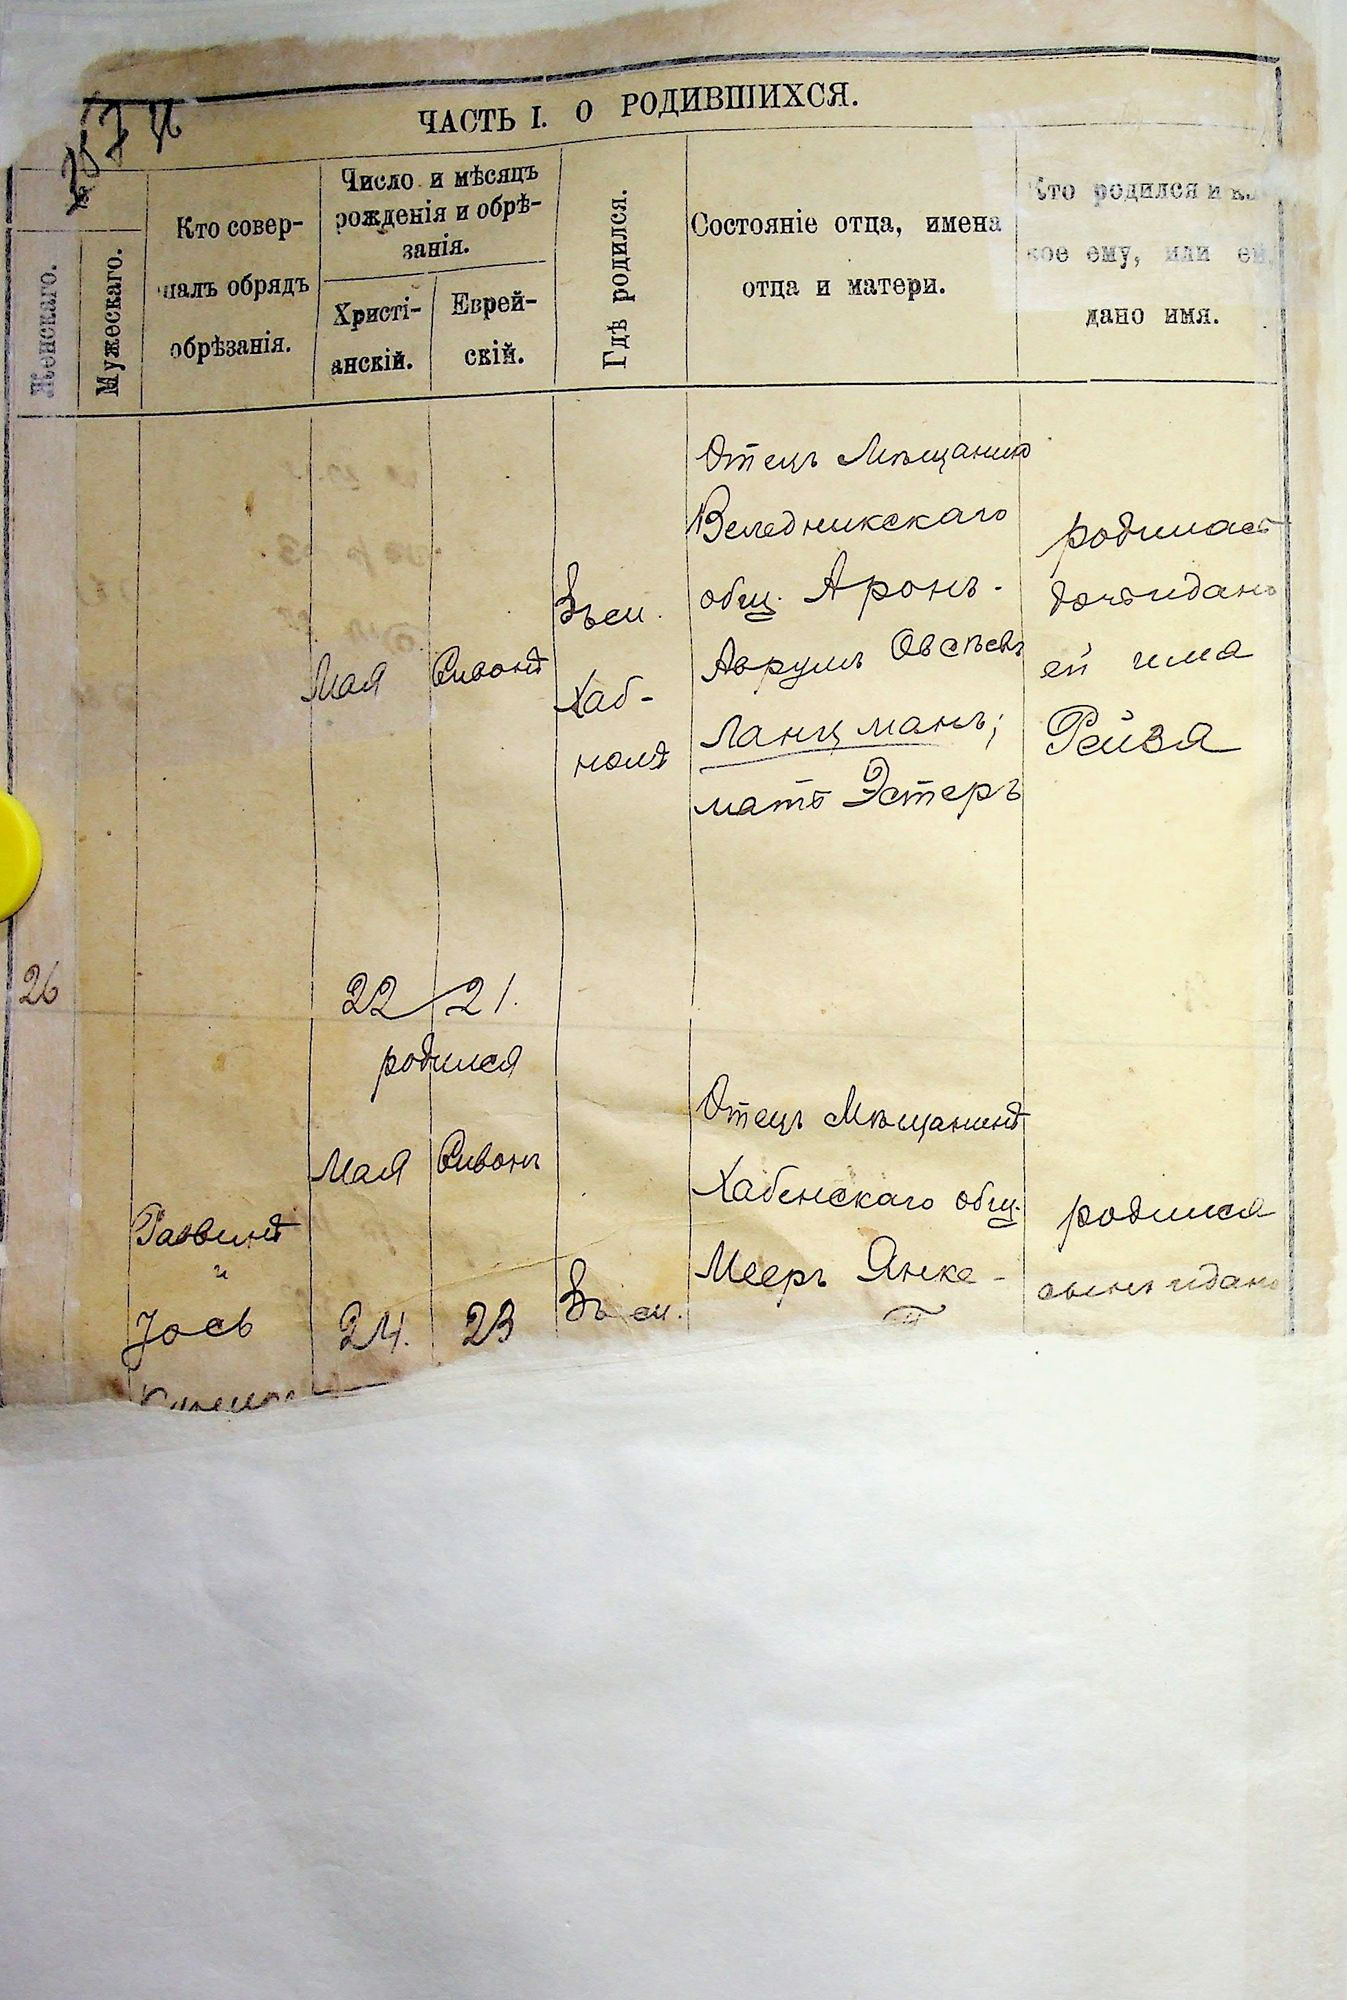 ЧАСТЬ I. О РОДИВШИХСЯ.
Женскаго.
Мужескаго.
Кто совер-
шалъ обрядъ
обрѣзанія.
Число и мѣсяцъ
рожденія и обрѣ-
занія.
Христі-
анскій.
Еврей-
скій.
Гдѣ родился.
Состояніе отца, имена
отца и матери.
Кто родился и ка-
кое ему, или ей,
дано имя.
26
Мая
22
Сивонъ
21.
Въ м.
Хаб-
номъ
Отецъ Мѣщанинъ
Веледникскаго
общ. Аронъ-
Аврумъ Овсѣевъ
Ланцманъ;
мать Эстеръ
родилась
дочь и дано
ей имя
Рейзя
родился
Раввинъ
и
Іось
Мая
24.
Сивонъ
23
Въ м.
Отецъ Мѣщанинъ
Хабенскаго общ.
Мееръ Янке-
родился
сынъ и дано